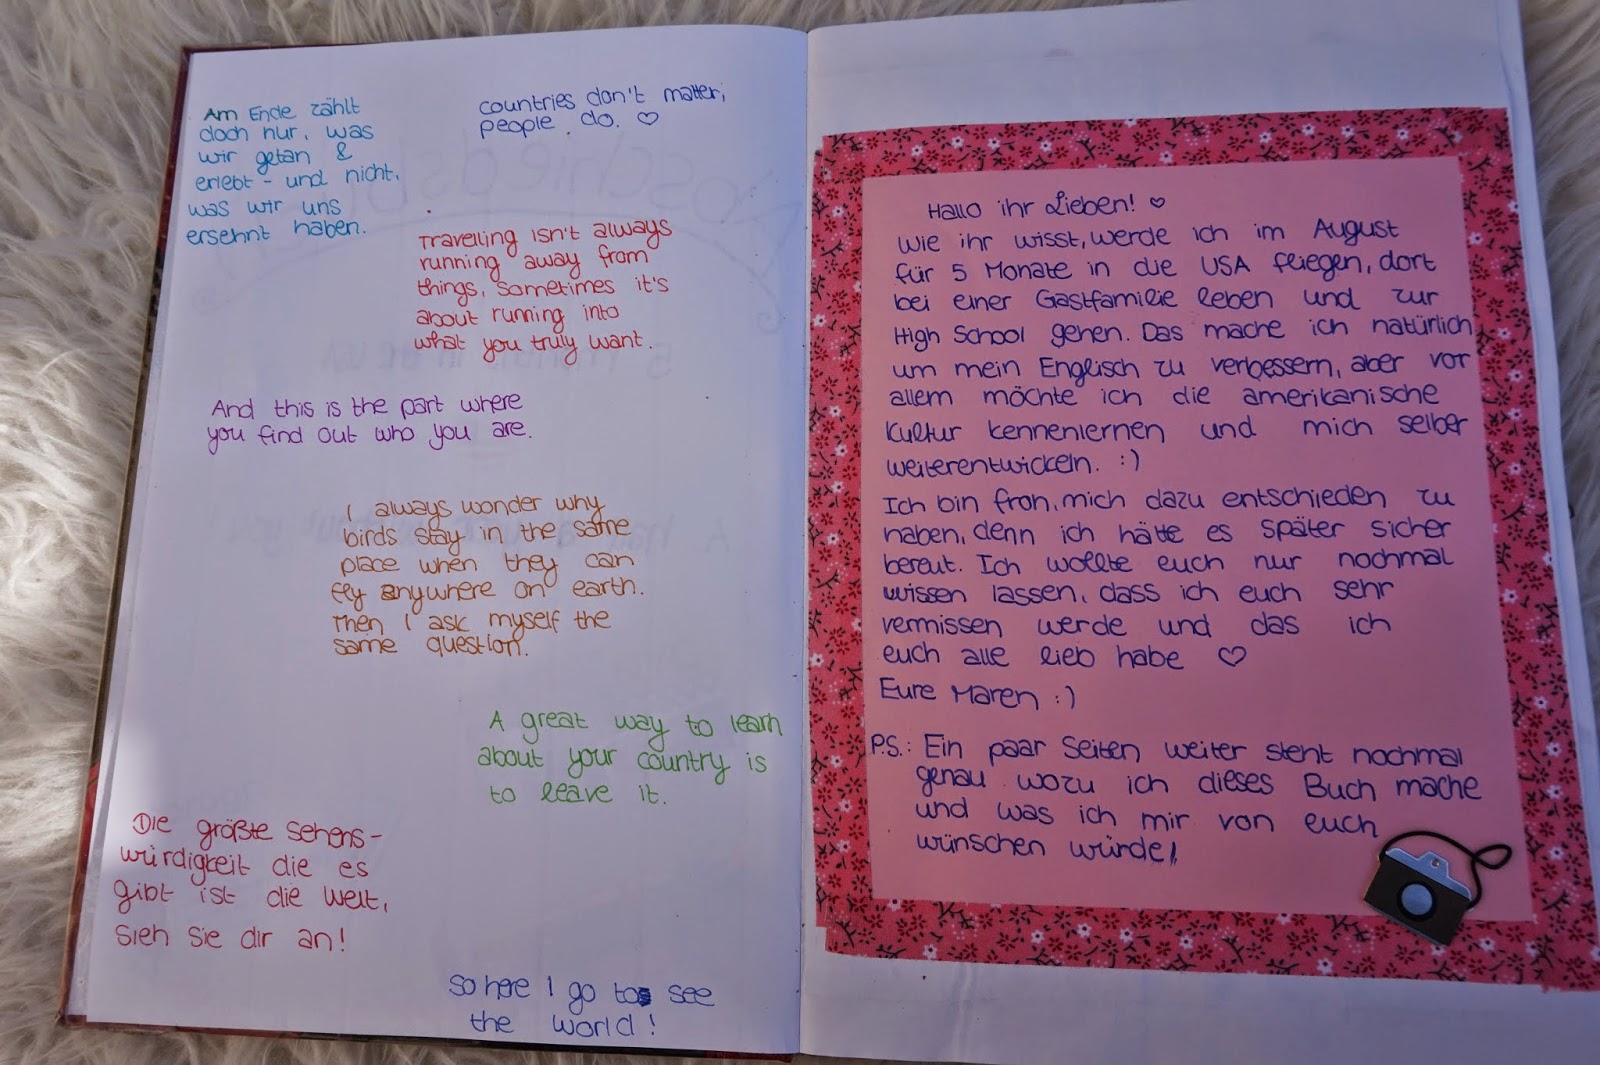 Am Ende zählt
doch nur, was
wir getan &
erlebt - und nicht,
was wir uns
ersehnt haben.
countries don't matter,
people do. ♡
Travelling isn't always
running away from
things, sometimes it's
about running into
what you truly want.
And this is the part where
you find out who you are.
I always wonder why
birds stay in the same
place when they can
fly anywhere on earth.
Then I ask myself the
same question.
A great way to learn
about your country is
to leave it.
Die größte Sehens-
würdigkeit die es
gibt ist die Welt,
sieh sie dir an!
So here I go to see
the world!
Hallo ihr Lieben! ♡
Wie ihr wisst, werde ich im August
für 5 Monate in die USA fliegen, dort
bei einer Gastfamilie leben und zur
High School gehen. Das mache ich natürlich
um mein Englisch zu verbessern, aber vor
allem möchte ich die amerikanische
Kultur kennenlernen und mich selber
weiterentwickeln. :)
Ich bin froh, mich dazu entschieden zu
haben, denn ich hätte es später sicher
bereut. Ich wollte euch nur nochmal
wissen lassen, dass ich euch sehr
vermissen werde und das ich
euch alle lieb habe ♡
Eure Maren :)
P.S.: Ein paar Seiten weiter steht nochmal
genau wozu ich dieses Buch mache
und was ich mir von euch
wünschen würde!